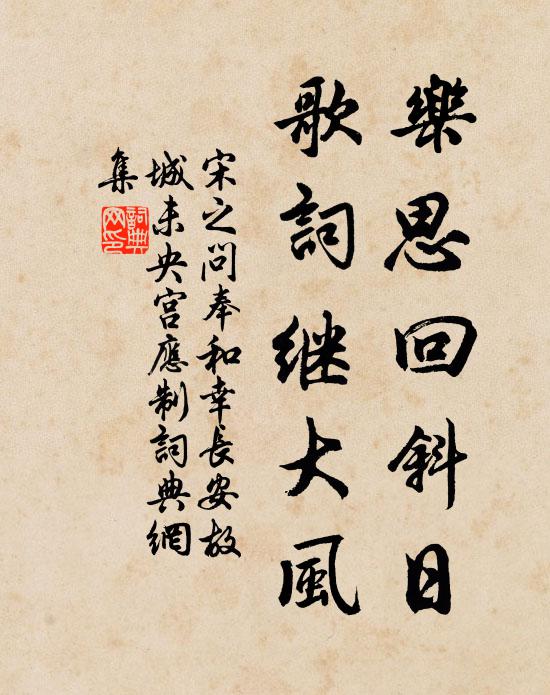 樂思回斜日
歌詞继大風
宋之问奉和幸長安故
城未央宫應制詞典網
集
詞典
网印